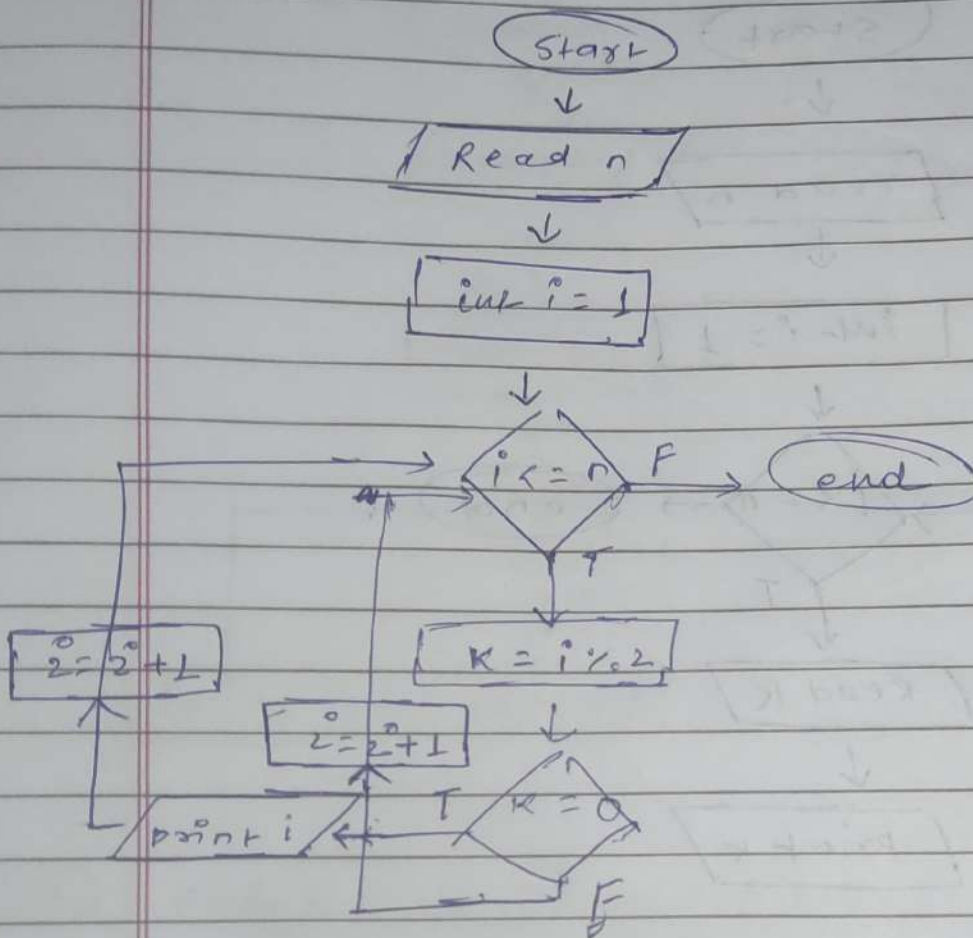 Start
Read n
int i = 1
i <= n
F
end
T
K = i % 2
i = i + 1
i = i + 1
K = 0
T
print i
F